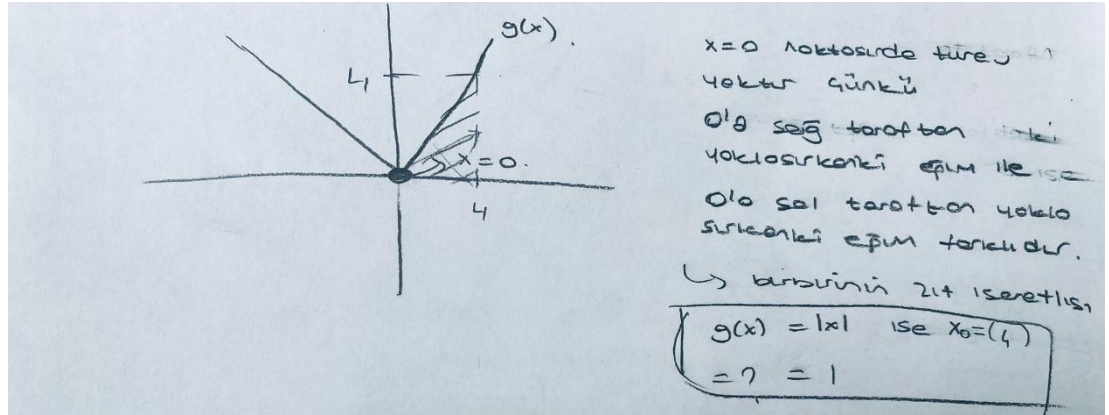 g(x).
4
x=0.
4
x=0 noktasında türev
yoktur çünkü
0'a sağ taraftan
yaklaşırkenki eğim ile
0'a sol taraftan yakla
şırkenki eğim farklıdır.
↳ birbirinin zıt işaretlisi
g(x) = |x| ise x₀=(4)
=? = 1